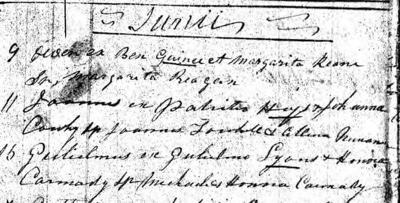 Junii
9 ex Ben Guinee et Margarita Keane
Sp. Margarita Reagan
11 Joannes ex Patritio Hays & Johanna
sp Joannes & Ellena Nunan
Gulielmus ex Gulielmo Lyons & Honora
Carmady sp Michael & Honora Carmady